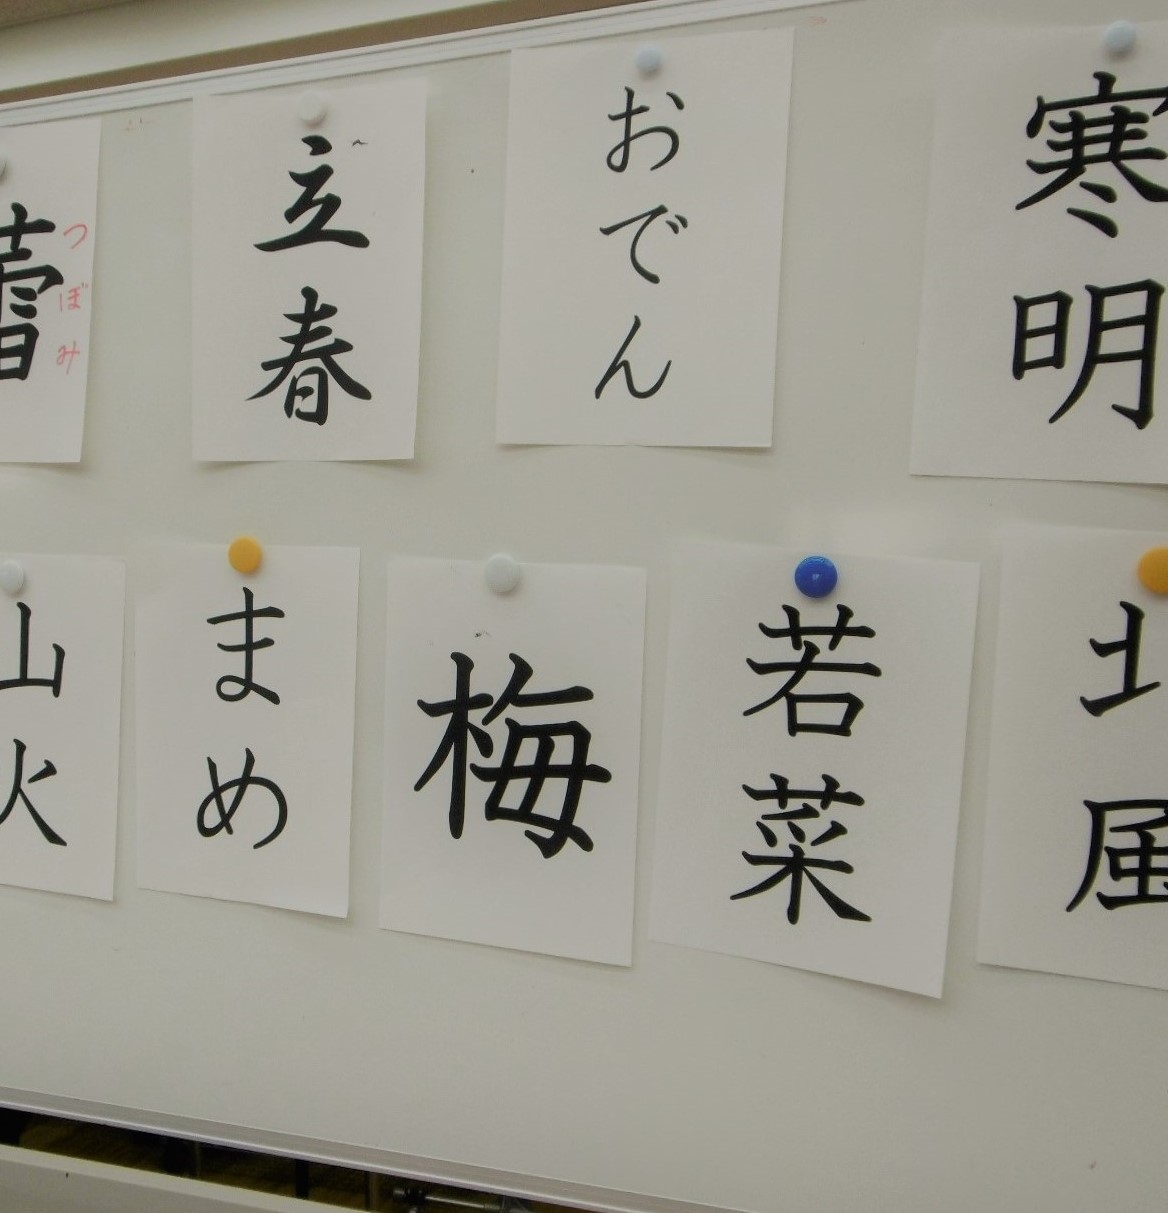 蕾
つぼみ
立春
おでん
寒明
山火
まめ
梅
若菜
北風